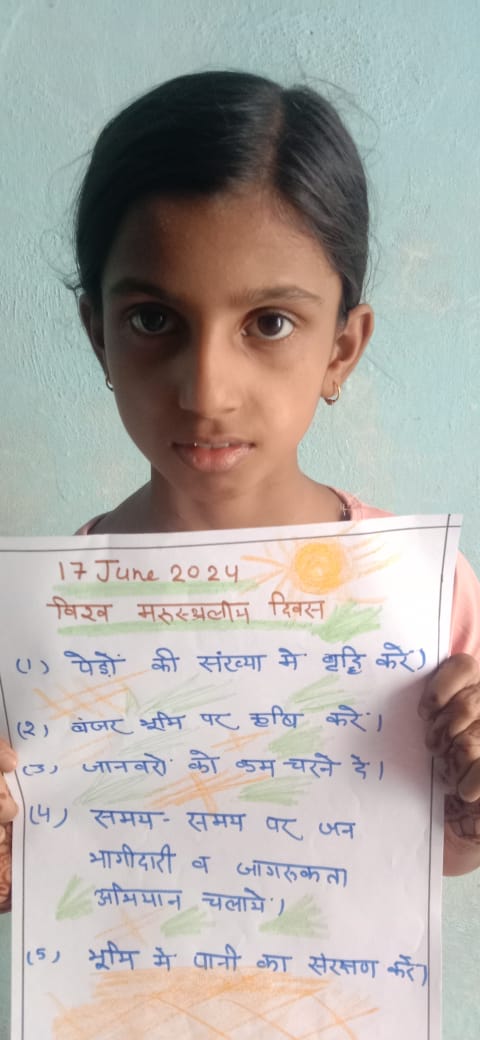 17 June 2024
विश्व मरुस्थलीय दिवस
(1) पेड़ों की संख्या मे वृद्धि करे)
(२) बंजर भूमि पर कृषि करे।
(3) जानवरो को कम चरने दे।
(4) समय-समय पर जन
भागीदारी व जागरुकता
अभियान चलाये।
(5) भूमि मे पानी का संरक्षण करे)